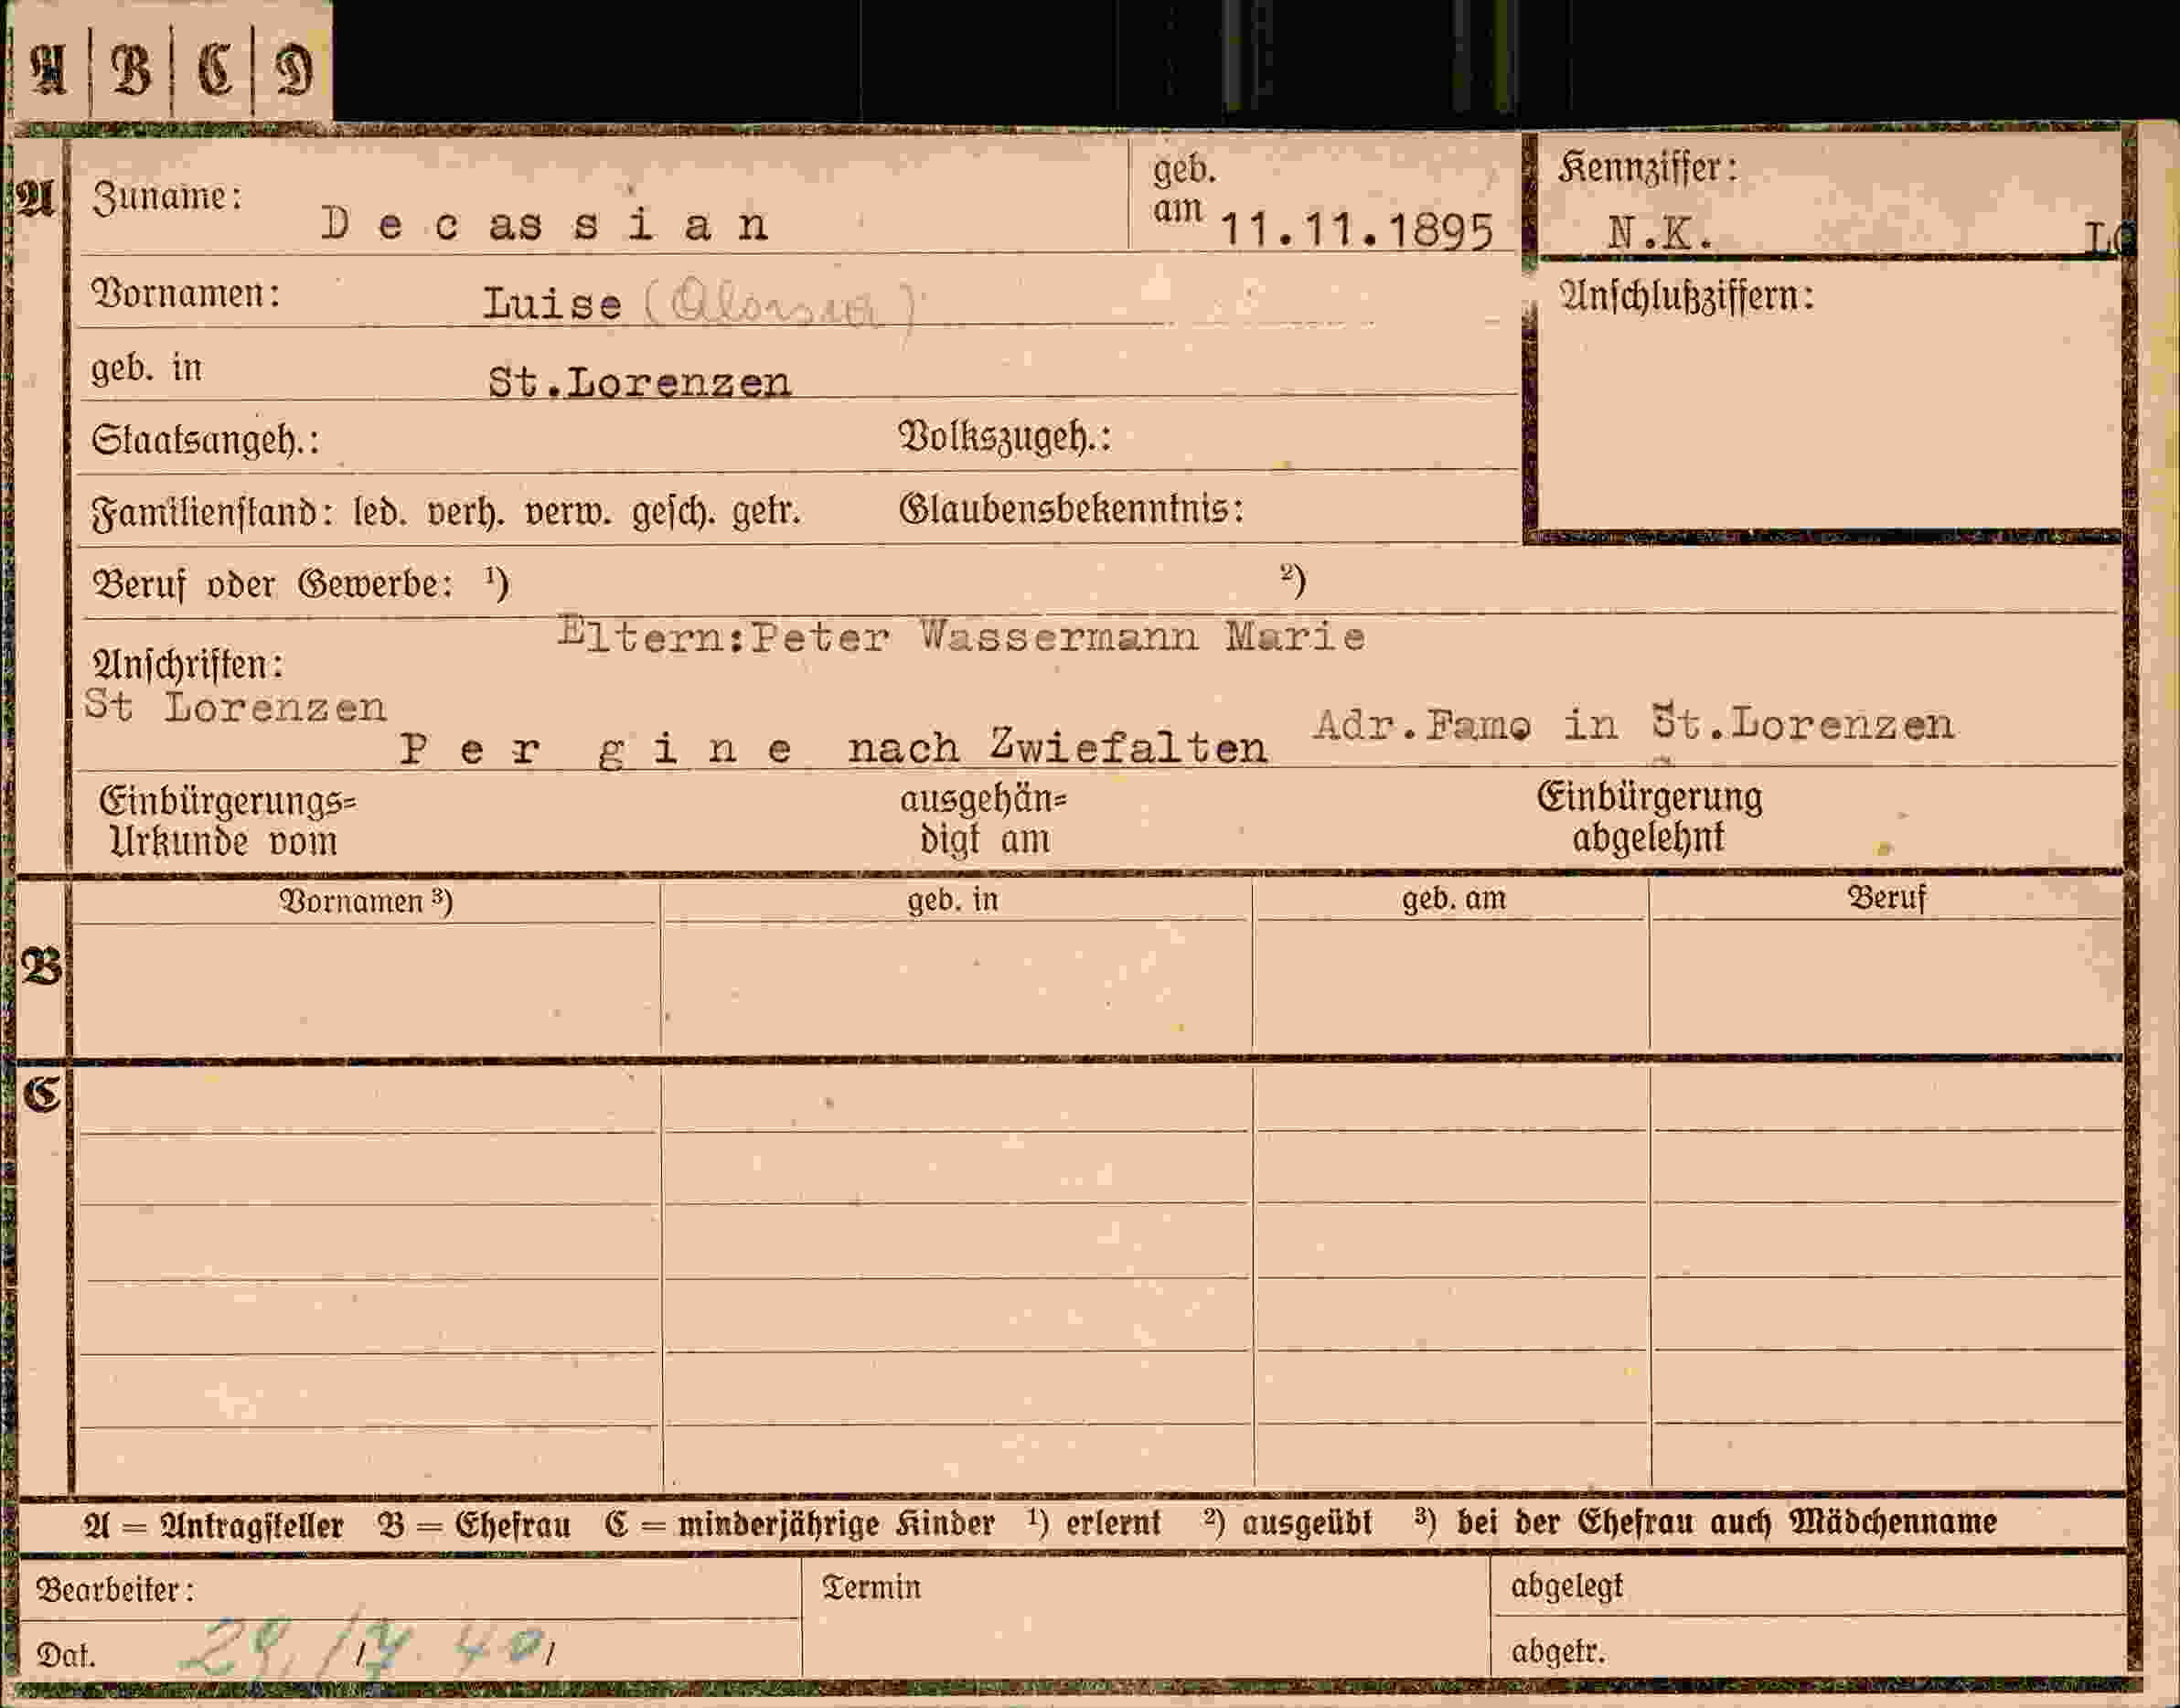 A | B | C | D
A Zuname: D e c as s i a n geb. am 11.11.1895 Kennziffer: N.K.
Vornamen: Luise Anschlußziffern:
geb. in St.Lorenzen
Staatsangeh.: Volkszugeh.:
Familienstand: led. verh. verw. gesch. getr. Glaubensbekenntnis:
Beruf oder Gewerbe: ¹) ²)
Eltern:Peter Wassermann Marie
Anschriften:
St Lorenzen
P e r g i n e nach Zwiefalten Adr.Famo in St.Lorenzen
Einbürgerungs= ausgehän= Einbürgerung
Urkunde vom digt am abgelehnt
Vornamen ³) geb. in geb. am Beruf
B
C
A = Antragsteller B = Ehefrau C = minderjährige Kinder ¹) erlernt ²) ausgeübt ³) bei der Ehefrau auch Mädchenname
Bearbeiter: Termin abgelegt
Dat. abgetr.